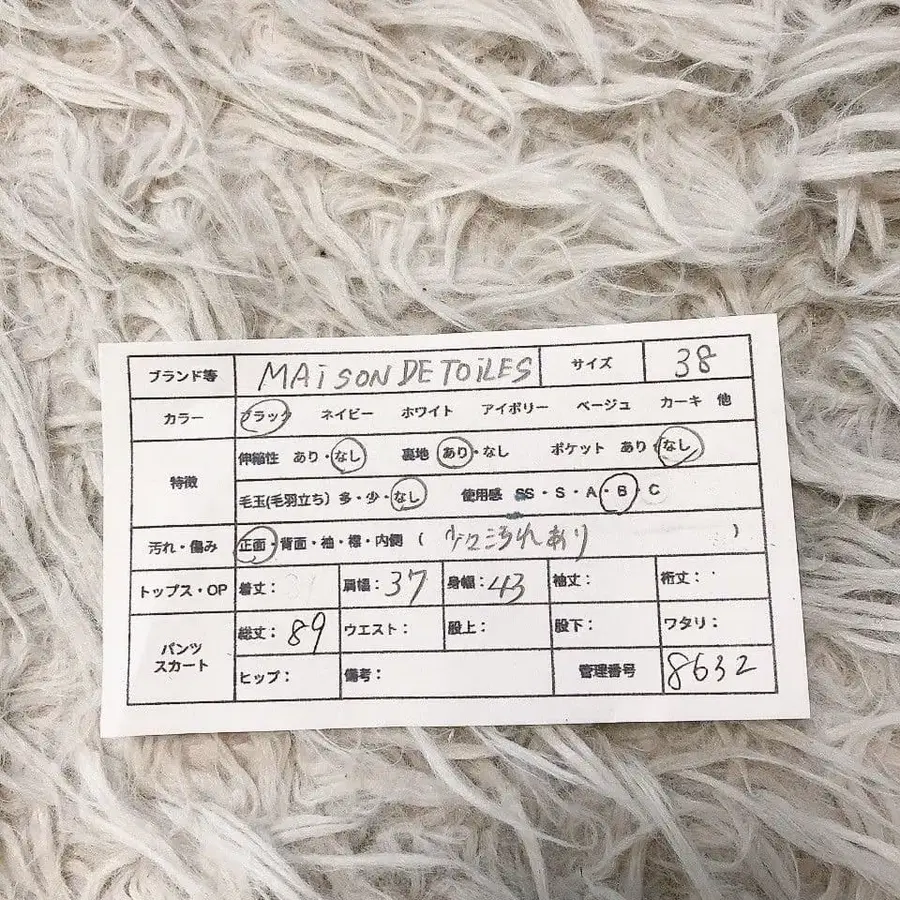 ブランド等 MAISON DE TOILES サイズ 38
カラー ブラック ネイビー ホワイト アイボリー ベージュ カーキ 他
特徴
伸縮性 あり・なし 裏地 あり・なし ポケット あり・なし
毛玉(毛羽立ち) 多・少・なし 使用感 SS・S・A・B・C
汚れ・傷み 正面・背面・袖・襟・内側 ( 汚れあり )
トップス・OP 着丈: 肩幅:37 身幅:43 袖丈: 裄丈:
パンツ
スカート
総丈:89 ウエスト: 股上: 股下: ワタリ:
ヒップ: 備考: 管理番号 8632